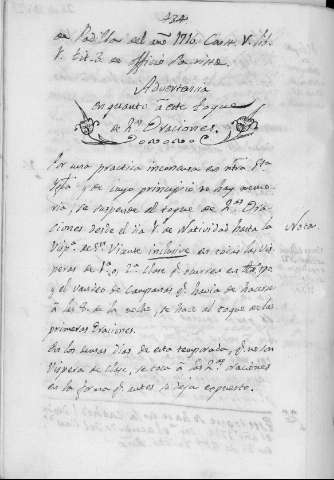 434
de Padilla del año 1710. Const. V. lib.
V. tit. 3. de officio
Advertencia
en quanto à este toque
de Oraciones.
Por una practica inconcusa en ntra Sta
Iglã, y de cuyo principio no hay memo-
ria, se suspende el toque de Ora-
ciones desde el dia de Natividad hasta la
de Sn Vicente inclusive en todas las Vis-
peras de 1ª o 2ª Clase q ocurren en
y el vandeo de Campanas q havia de hacerse
à las 8 de la noche, se hace al toque de las
primeras Oraciones.
En los demas dias de esta temporada, q no son
Vispera de Clase, se toca à las Oraciones
en la forma q antes se deja expuesto.
Nota